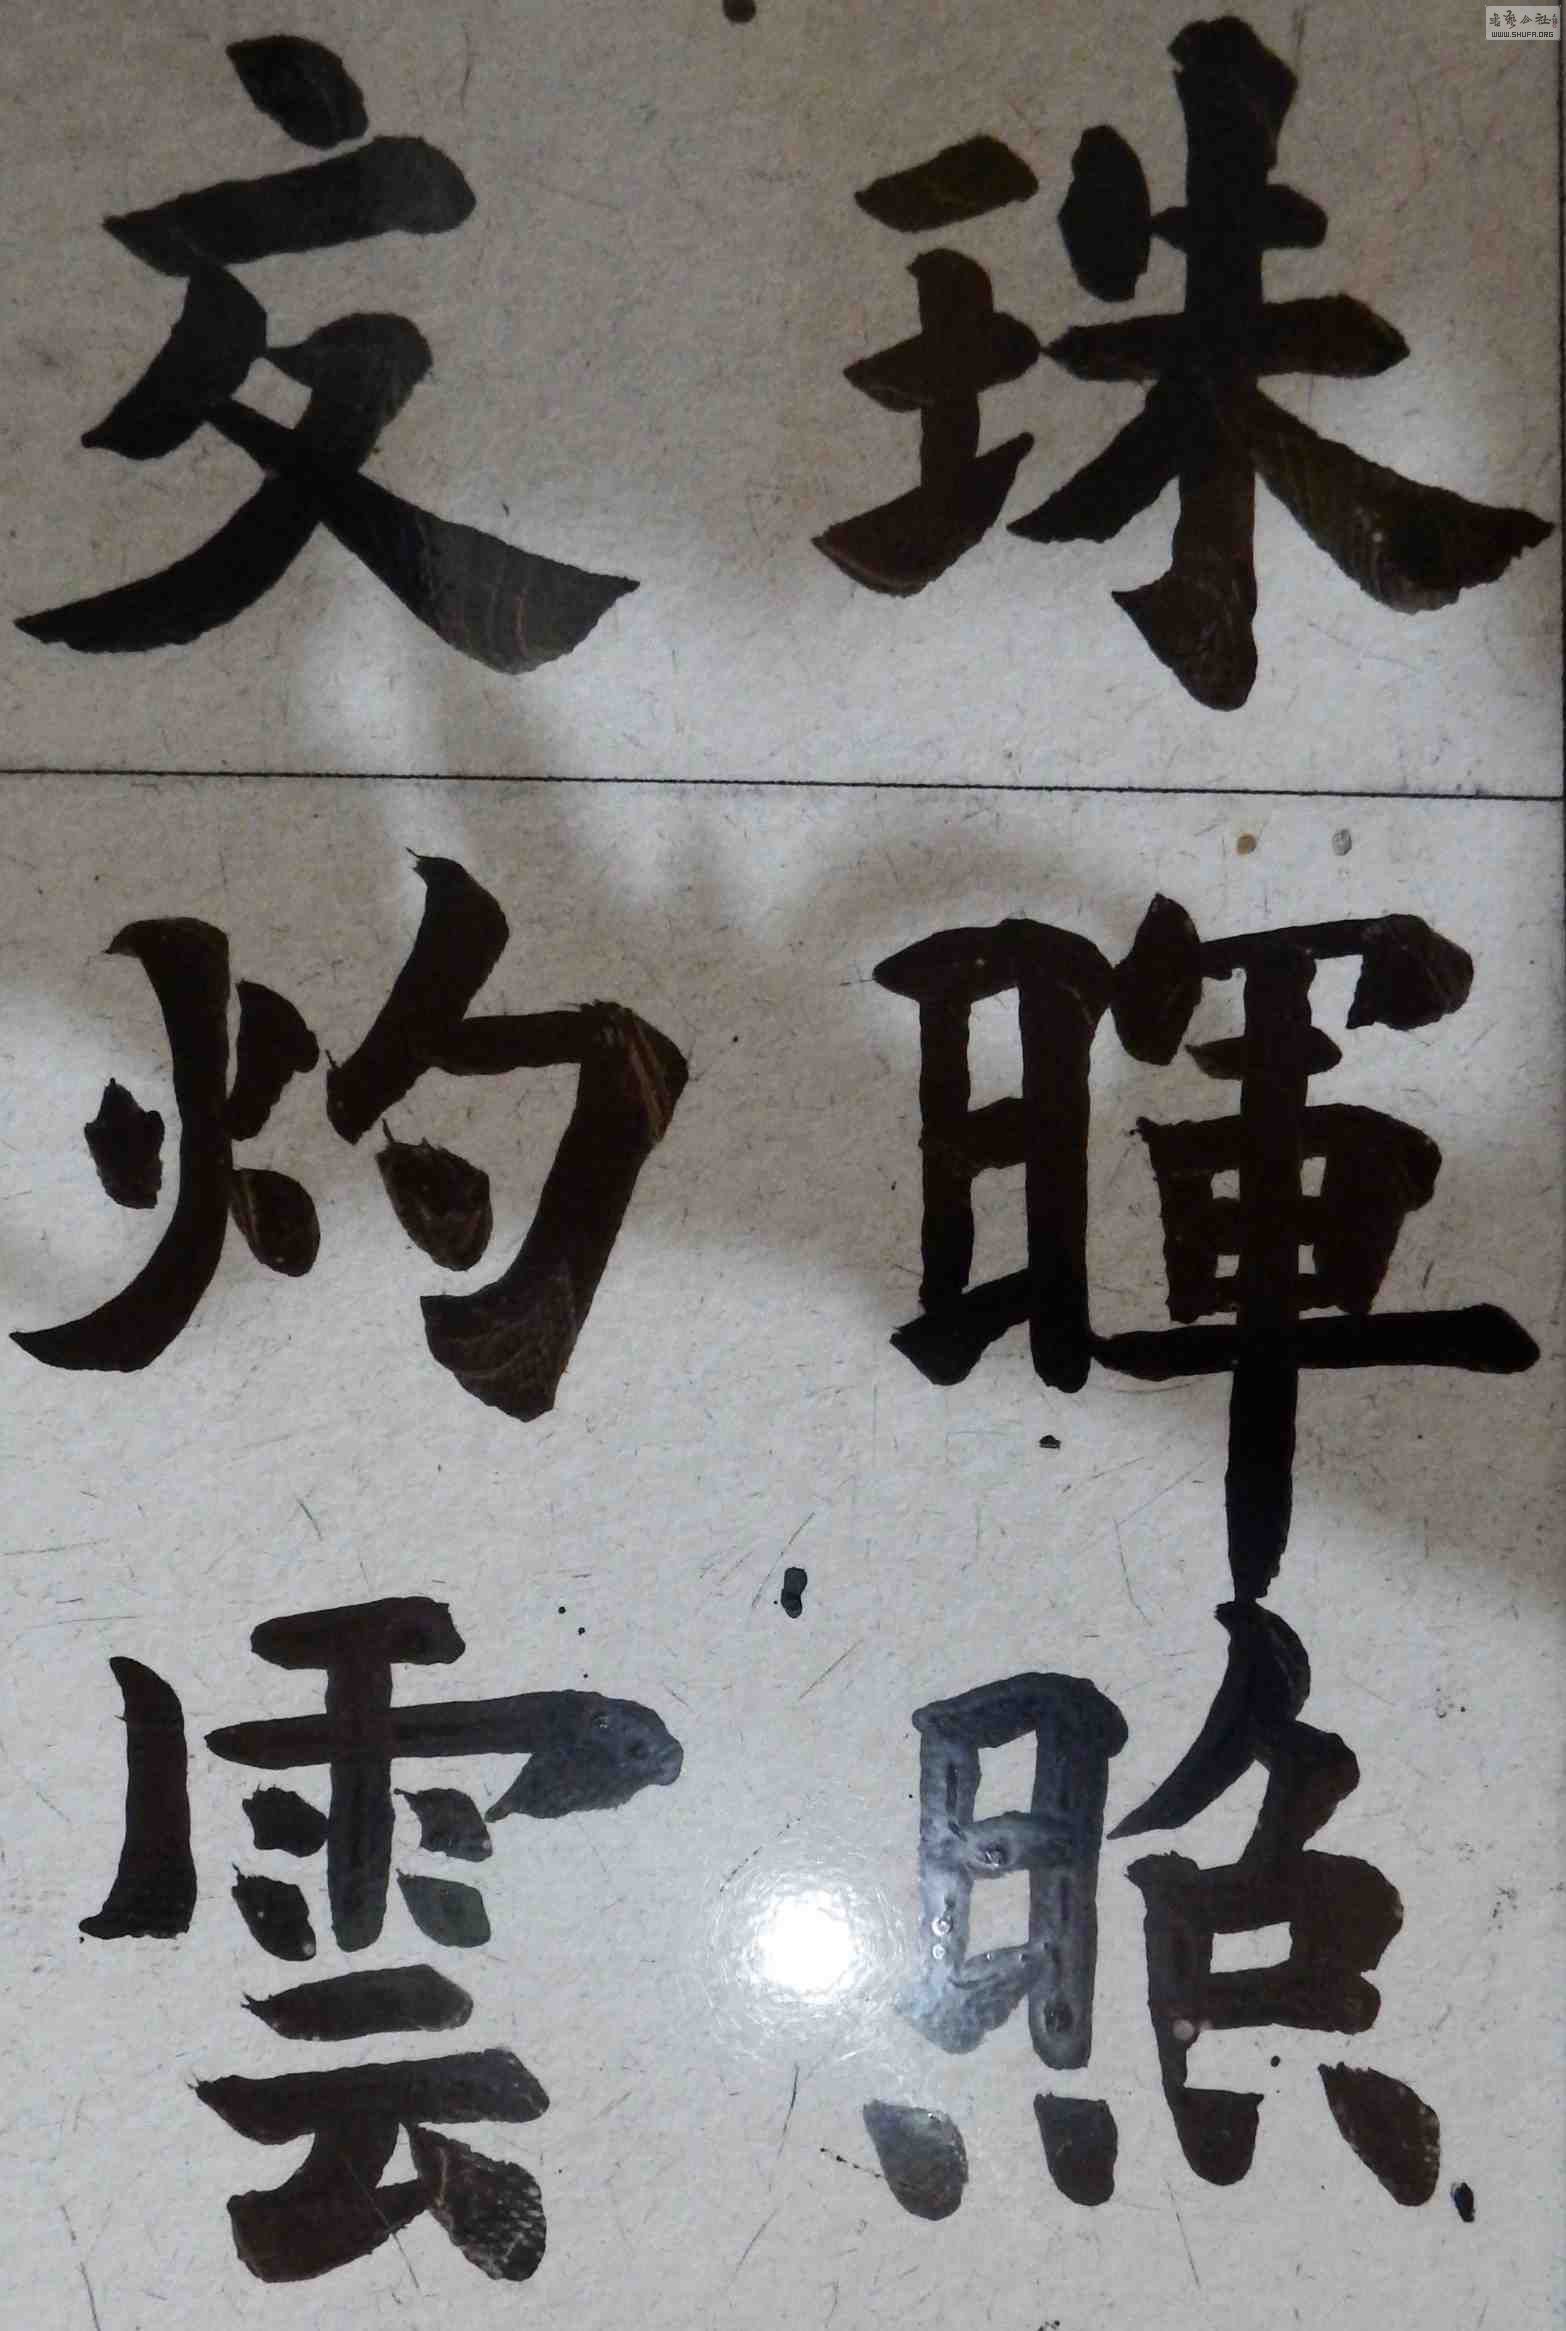 珠暉照
交灼雲
書藝公社
WWW.SHUFA.ORG